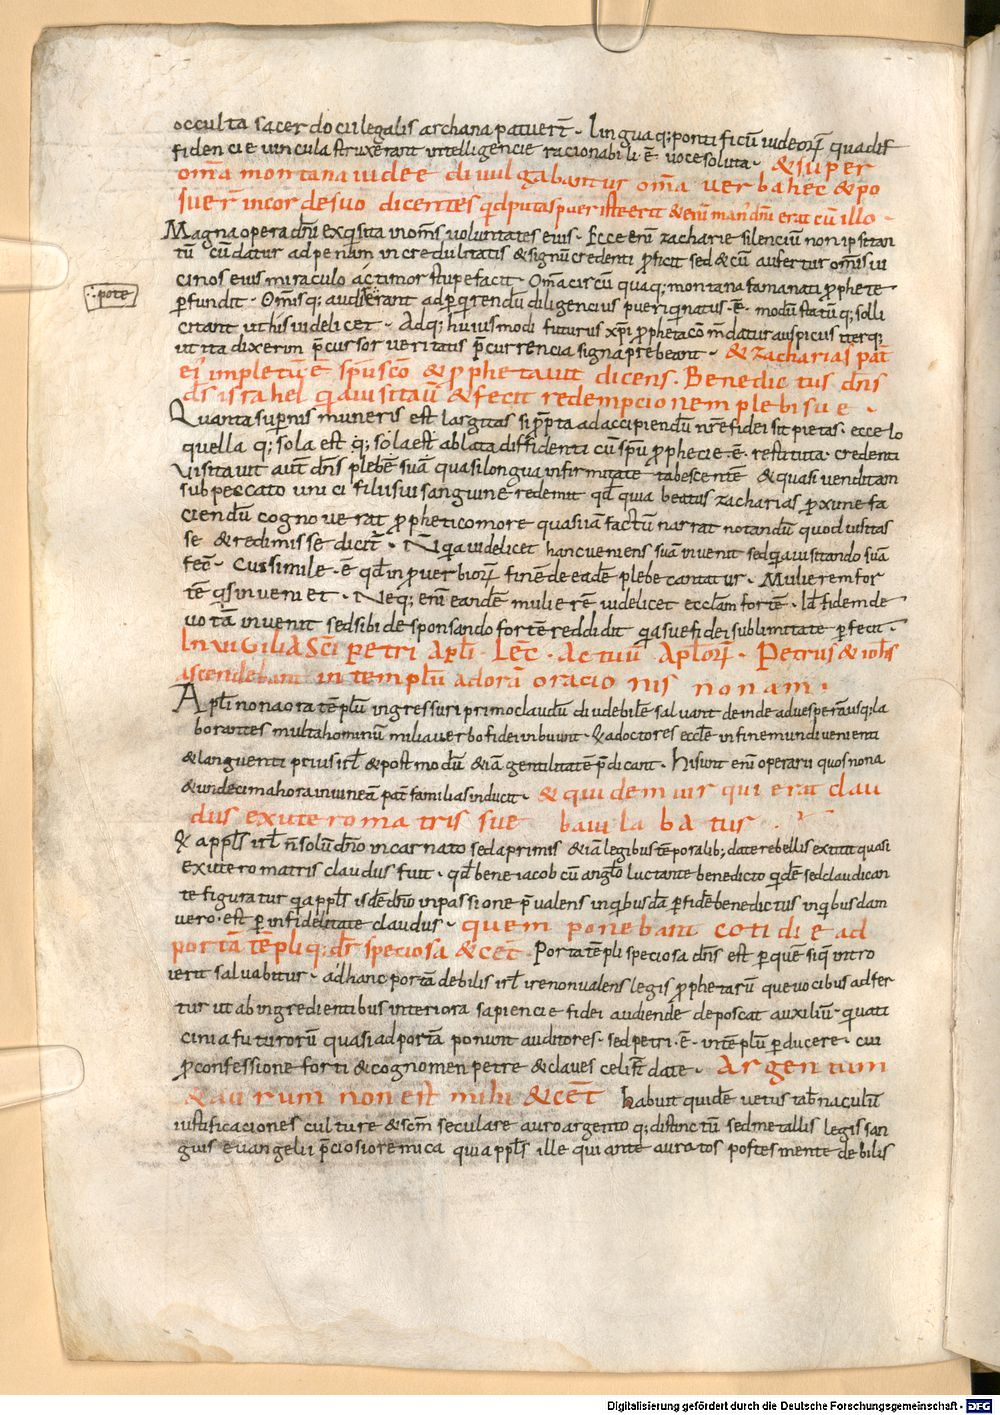 occulta sacerdocii legalis archana patuer̄t · Linguaq; pontificū iudeorꝝ qua dif
fidencie uincula struxerant intelligencie racionabili ·ē· uoce soluta · & super
om̄a montana iudee diuulgabantur om̄a uerba hec & po
suer̄ in corde suo dicentes qd putas puer iste erit & eni man' dn̄i erat cū illo ·
Magna opera dn̄i exqisita in om̄s uoluntates eius · Ecce enī zacharie silenciū non ipsi tan
tū cū datur ad penam incredulitatis & signū credenti ꝓficit sed & cū aufertur om̄is ui
cinos eius miraculo ac timor stupefacit · Om̄a circū quaq; montana fama nati ꝓphete
ꝑfundit · Om̄isq; audierant ad ꝑqirendū diligencius puer qi natus ·ē· modū statūq; solli
∴ pote
citant ut his uidelicet · Adq; huiusmodi futurus xp̄i ꝓpheta cō m̄datur auspicus iterq;
ut ita dixerim p̄cursor ueritatis p̄currencia signa prebeant · & zacharias pat̄
ei' impletus ē spū sc̄o & ꝓphetauit dicens. Benedictus dn̄s
ds̄ israhel qa uisitauit & fecit redempcionem plebi sue ·
Quanta superni muneris est largitas si ꝓmpta ad accipiendū nr̄e fidei sit pietas · ecce lo
quella q; sola est q; sola est ablata diffidenti cū spū ꝓphecie ·ē· restituta credenti
Visitauit aut̄ dn̄s plebē suā quasi longua infirmitate tabescentē & quasi uenditam
sub peccato unici filii sui sanguine redemit qd̄ quia beatus zacharias ꝓxune fa
ciendū cognouerat ꝓphetico more quasi iā factū narrat notandū quod uisitas
se & redimisse dicit̄ · Nō qia uidelicet hanc ueniens suā inuenit sed qia uisitando suā
fec̄ · Cui simile ·ē· qd̄ in ꝓuerbiorꝝ fine de eadē plebe cantatur · Mulierem for
tē qs inueniet · Neq; enī eandē mulierē uidelicet ecclam fortē · ł a fidem de
uotā inuenit sed sibi desponsando fortē reddidit qa sue fidei sublimitate ꝑfecit ·
In uigilia sc̄i petri apl̄i · Lec̄ · Actuū apl̄orꝝ · Petrus & ioh̄s
ascendebant in templū ad orā oracionis nonam ·
Apl̄i nona ora tēplū ingressuri primo claudū diu debilē saluant deinde ad uesperāusq; la
borantes multa hominū milia uerbo fidei inbuunt · & a doctores eccl̄e in fine mundi uenienti
& languenti prius isrl̄ & post modū & iā gentilitatē p̄dicant · Hi sunt enī operarii quos nona
& undecima hora in uineā pat̄ familias inducit · & quidem uir qui erat clau
dus ex utero matris sue baiulabatus ·
& a ppl̄s isrl̄ n̄ solū dn̄o incarnato sed a primis & iā legis temporalib; date rebellis extitit quasi
ex utero matris claudus fuit · qd̄ bene iacob cū angl̄o luctante benedicto qidē sed claudican
te figuratur qa ppl̄s isdē dn̄o in passione p̄ualens in qibusdā ꝑ fidē benedictus in qibusdam
uero · est ꝑ infidelitate claudus · quem ponebant cotidie ad
portā tēpli q; dr̄ speciosa & cet̄ · Porta tēpli speciosa dn̄s est ꝑ quē siqi intro
ierit saluabitur · ad hanc portā debilis isrl̄ ire non ualens legis ꝓphetarū que uocibus adfer
tur ut ab ingredientibus interiora sapiencie fidei audiende deposcat auxiliū · quati
cinia futurorū quasi ad portā ponunt auditores · sed petri ·ē· in tēplū ꝑducere · cui
ꝓ confessione forti & cognomen petre & claues celis st̄ date · Argentum
& aurum non est mihi & cet̄ Habuit quidē uetus tab̄naculū
iustificaciones culture & sc̄m seculare auro argentoq; distinctū sed metallis legis san
guis euangelii p̄ciosiore mica qui a ppl̄s ille qui ante auratos postes mente debilis
Digitalisierung gefördert durch die Deutsche Forschungsgemeinschaft - DFG